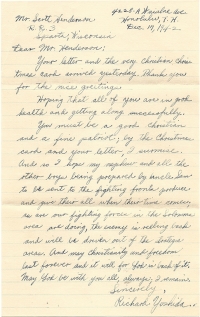 4028-A Keanu Dr.
Mr. Scott Henderson Honolulu, T. H.
R. R. 3 Dec. 19, 1942
Sparta, Wisconsin
Dear Mr. Henderson:
Your letter and the very Christian Christmas
card arrived yesterday. Thank you
for the nice greetings.
Hoping that all of you are in good
health and getting along successfully.
You must be a good Christian
and a fine patriot, by the Christmas
card and your letter, I surmise.
And so I hope my nephew and all the
other boys being prepared by Uncle Sam
to be sent to the fighting fronts produce
and give their all when their time comes,
as our fighting forces in the Solomon
area are doing, the enemy is reeling back
and will be driven out of the
areas. And may Christianity and freedom
last forever and it will for God is back of it.
May God be with you all, always, I remain
Sincerely,
Richard Yoshida